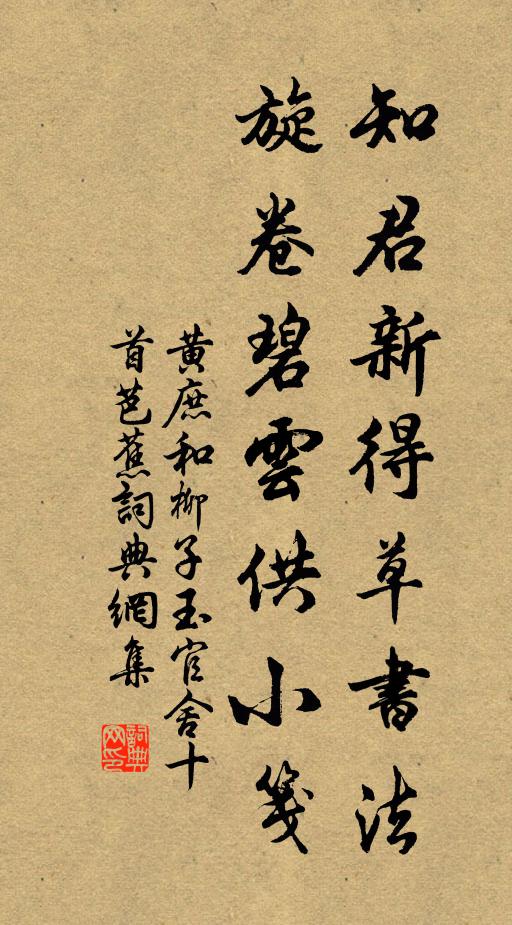 知君新得草書法
旋卷碧雲供小箋
黃庶和柳子玉官舍十
首芭蕉詞典網集
詞典
网印